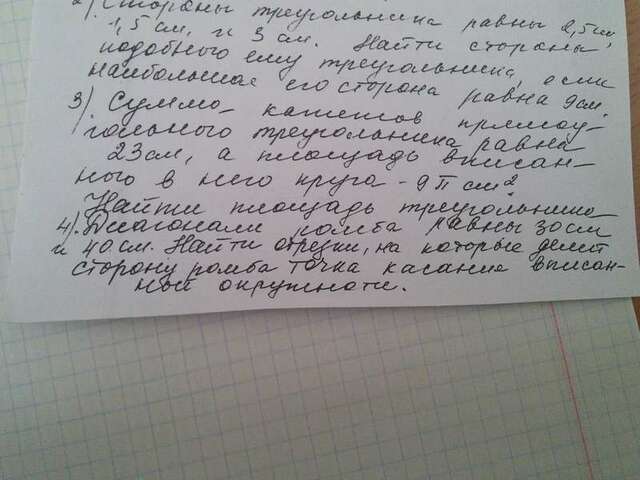 2) Стороны треугольника равны 2,5 см,
1,5 см, и 3 см. Найти стороны
подобного ему треугольника, если
наибольшая его сторона равна 9 см.
3) Сумма катетов прямоу-
гольного треугольника равна
23 см, а площадь вписан-
ного в него круга - 9π см².
Найти площадь треугольника
4). Диагонали ромба равны 30 см
и 40 см. Найти отрезки, на которые делит
сторону ромба точка касание вписан-
ной окружноти.